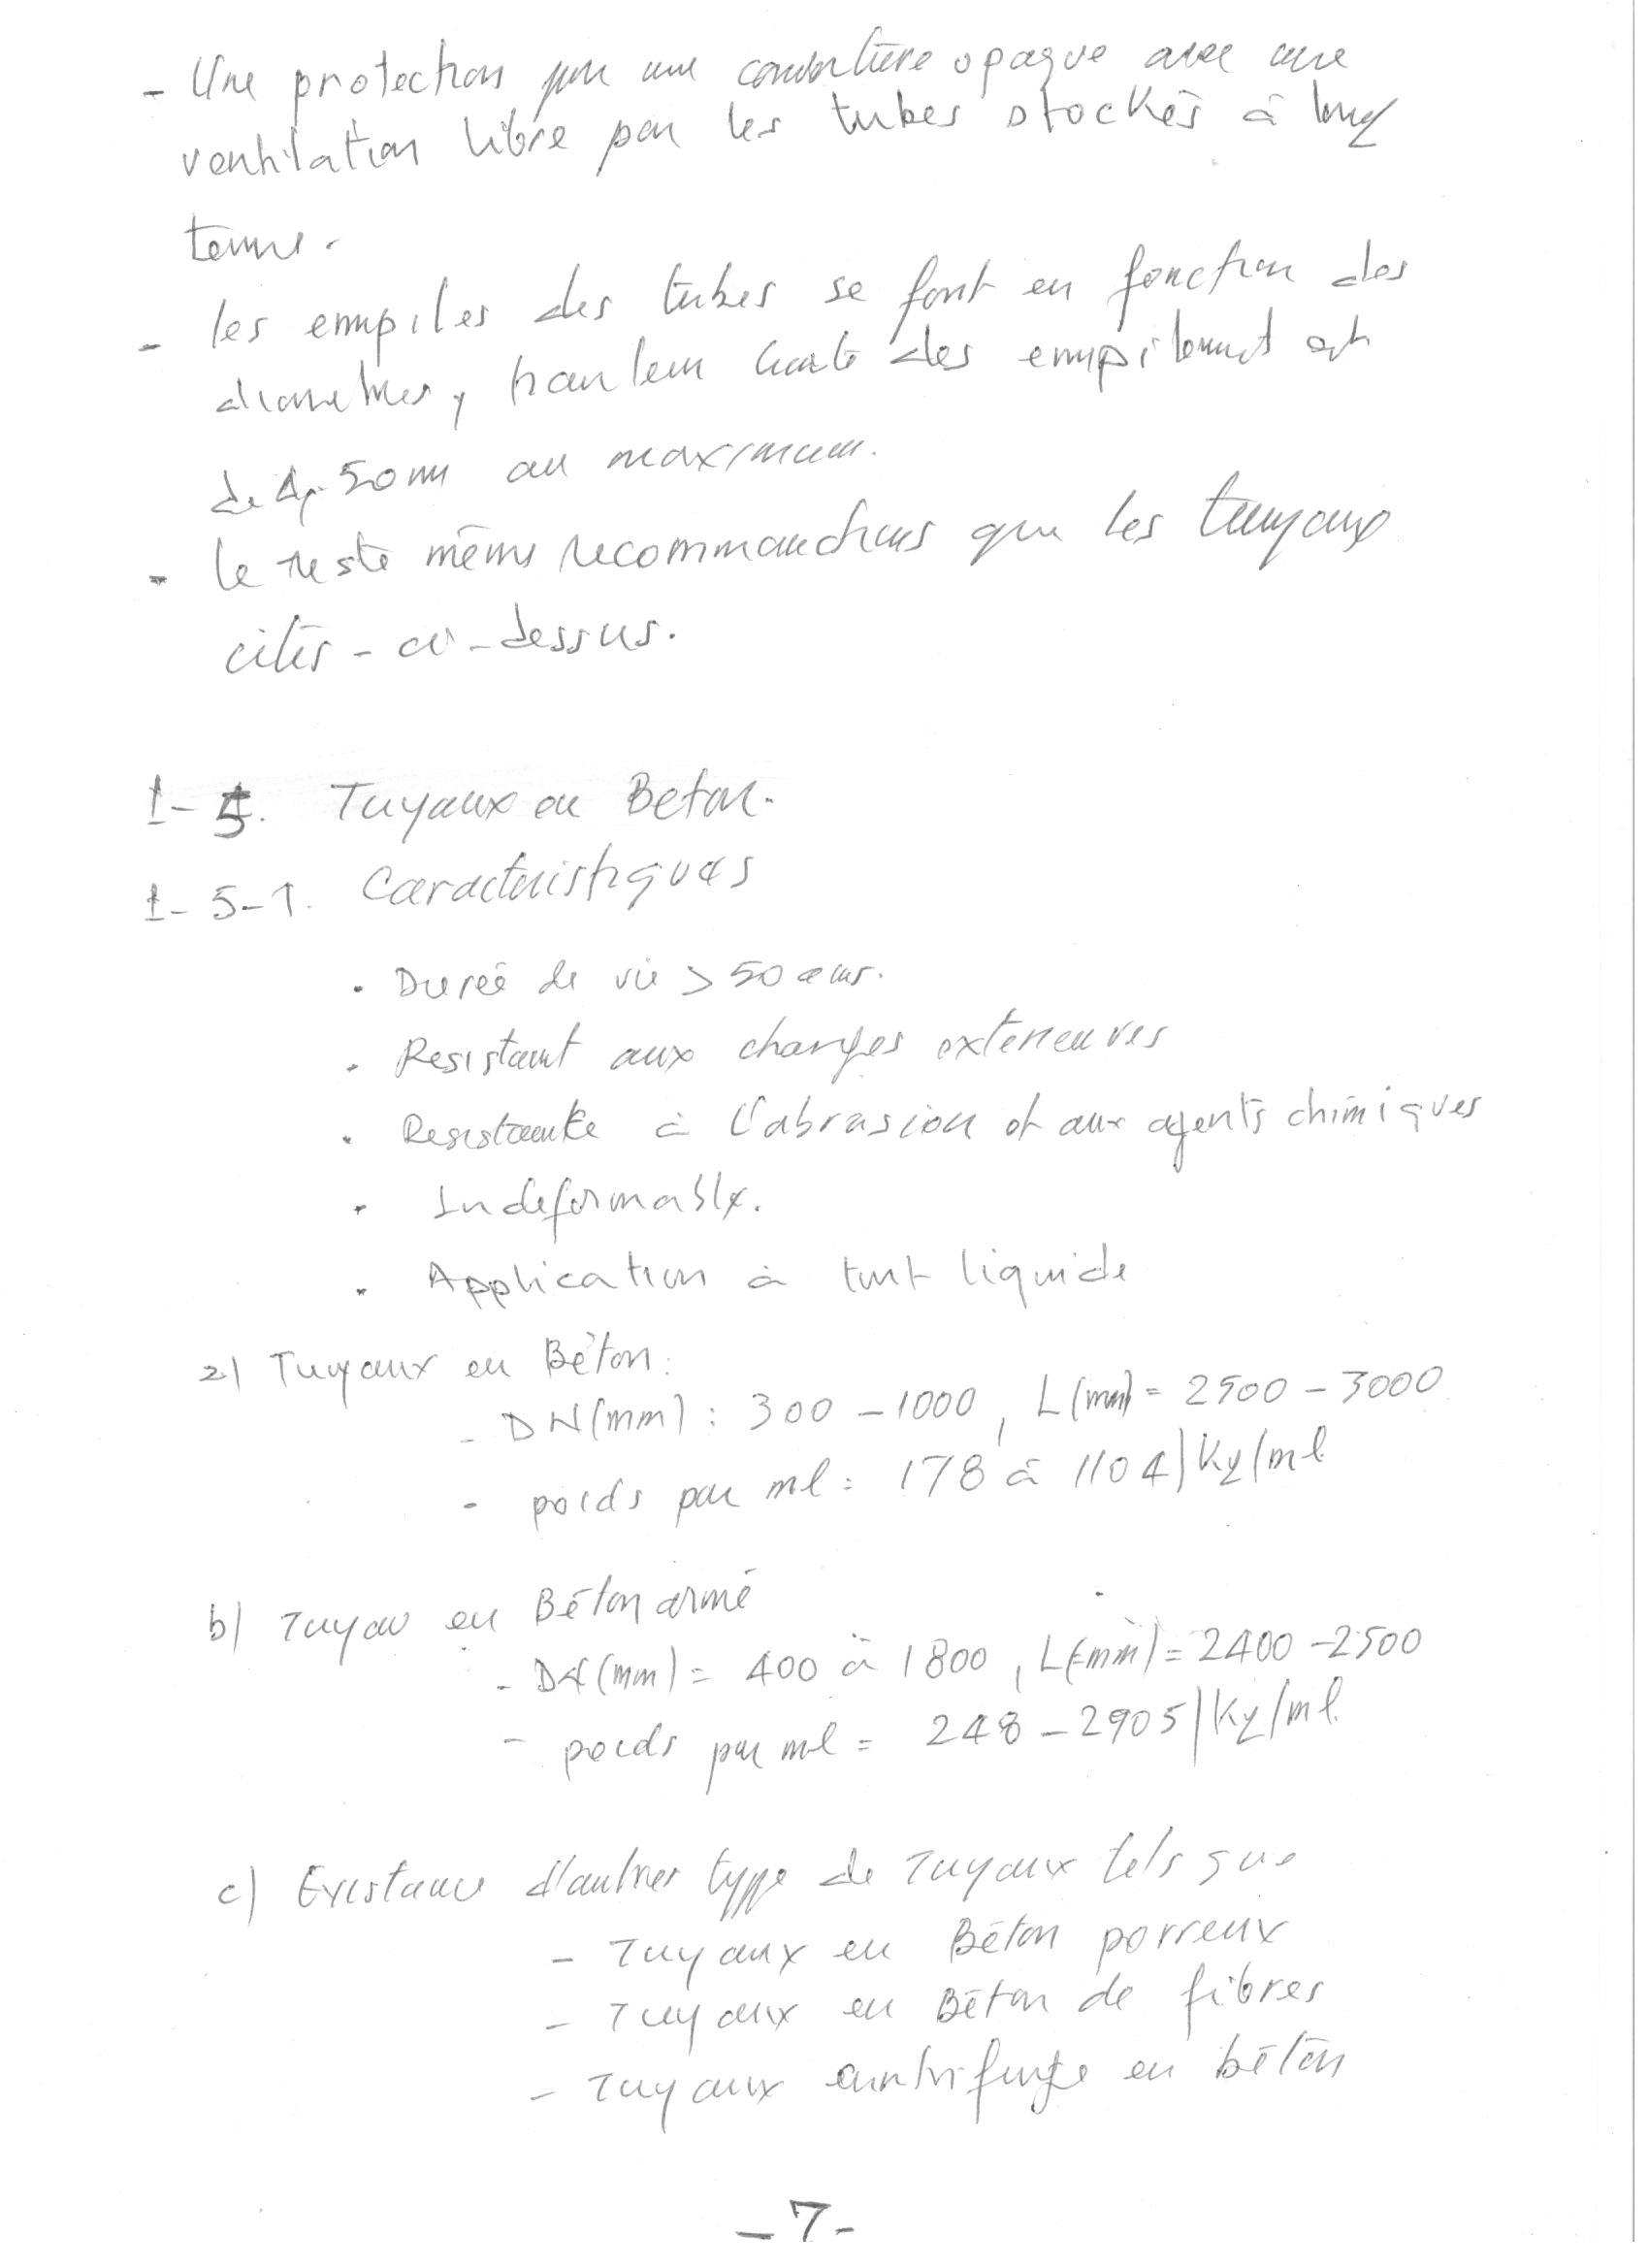 - Une protection par une couverture opaque avec une
ventilation libre pour les tubes stockés à long
terme.
- les empiles des tubes se font en fonction des
diametres, hauteur des empilement est
de 1,50m au maximum.
- le reste même recommandations que les tuyaux
cités-ci-dessus.
1-5. Tuyaux en Beton.
1-5-1. Caracteristiques
. Dureé de vie > 50 ans.
. Resistant aux charges exterieures
. Resistante à l'abrasion et aux agents chimiques
. Indeformable.
. Application à tout liquide
a) Tuyaux en Béton:
- DN(mm) : 300 - 1000, L(mm) = 2500 - 3000
- poids par ml : 178 à 1104) Kg/ml
b) Tuyau en Béton armé
- DN(mm) = 400 à 1800, L(mm) = 2400 - 2500
- poids par ml = 248 - 2905) Kg/ml.
c) Existance d'autres type de Tuyaux tels que
- Tuyaux en Béton porreux
- Tuyaux en Béton de fibres
- Tuyaux centrifuge en béton
- 7 -